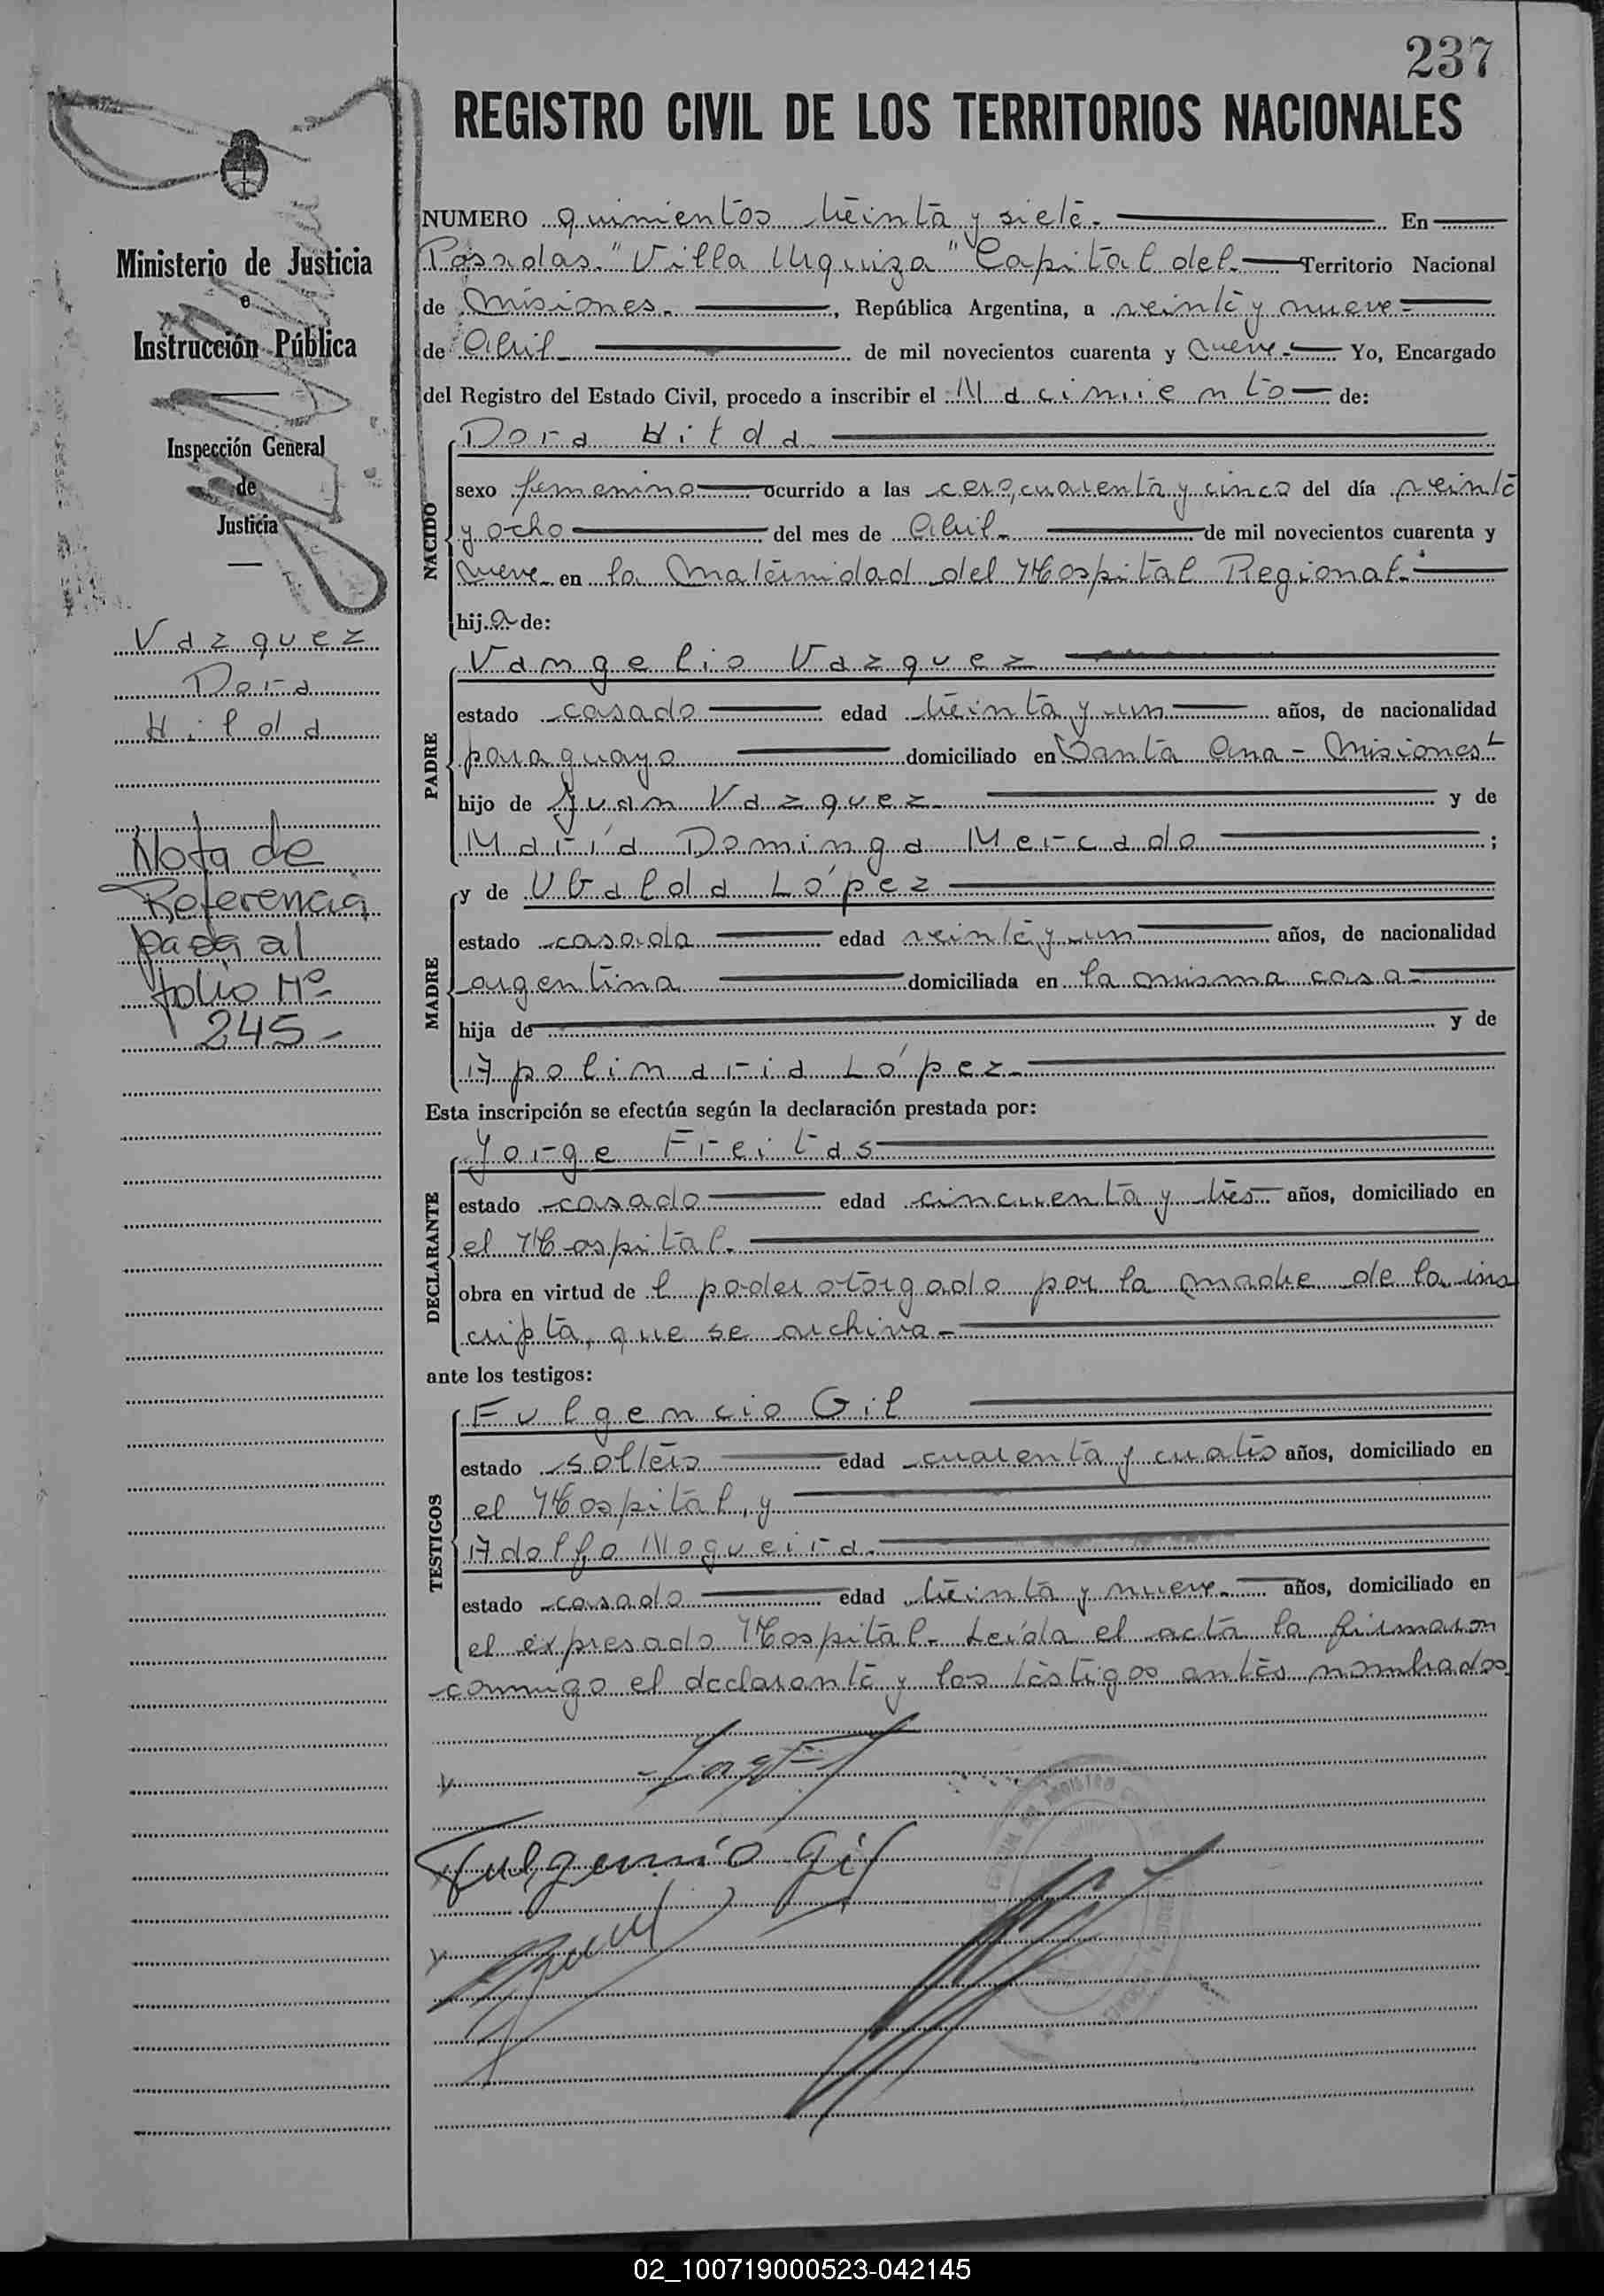 237
REGISTRO CIVIL DE LOS TERRITORIOS NACIONALES
Ministerio de Justicia
e
Instrucción Pública
Inspección General
de
Justicia
Vazquez
Dora
Hilda
Nota de
Referencia
pasa al
folio Nº
245-
NUMERO quinientos treinta y siete.- En
Posadas. "Villa Urquiza" Capital del.- Territorio Nacional
de Misiones.- , República Argentina, a veinte y nueve-
de Abril- de mil novecientos cuarenta y nueve.- Yo, Encargado
del Registro del Estado Civil, procedo a inscribir el Nacimiento de:
Dora Hilda.
NACIDO
sexo femenino ocurrido a las cero, cuarenta y cinco del día veinte
y ocho del mes de Abril- de mil novecientos cuarenta y
nueve- en la Maternidad del Hospital Regional.-
hija de:
PADRE
Vangelio Vazquez
estado casado edad treinta y un años, de nacionalidad
paraguayo domiciliado en Santa Ana - Misiones-
hijo de Juan Vazquez y de
María Dominga Mercado ;
MADRE
y de Ubalda López
estado casada edad veinte y un años, de nacionalidad
argentina domiciliada en la misma casa-
hija de y de
Apolinaria López.-
Esta inscripción se efectúa según la declaración prestada por:
DECLARANTE
Jorge Freitas
estado casado edad cincuenta y tres años, domiciliado en
el Hospital.
obra en virtud de l poder otorgado por la madre de la ins
cripta, que se archiva-
ante los testigos:
TESTIGOS
Fulgencio Gil
estado soltero edad cuarenta y cuatro años, domiciliado en
el Hospital, y
Adolfo Nogueira.
estado casado edad treinta y nueve.- años, domiciliado en
el expresado Hospital.- Leída el acta la firmaron
conmigo el declarante y los testigos antes nombrados
Fulgencio Gil
02_100719000523-042145